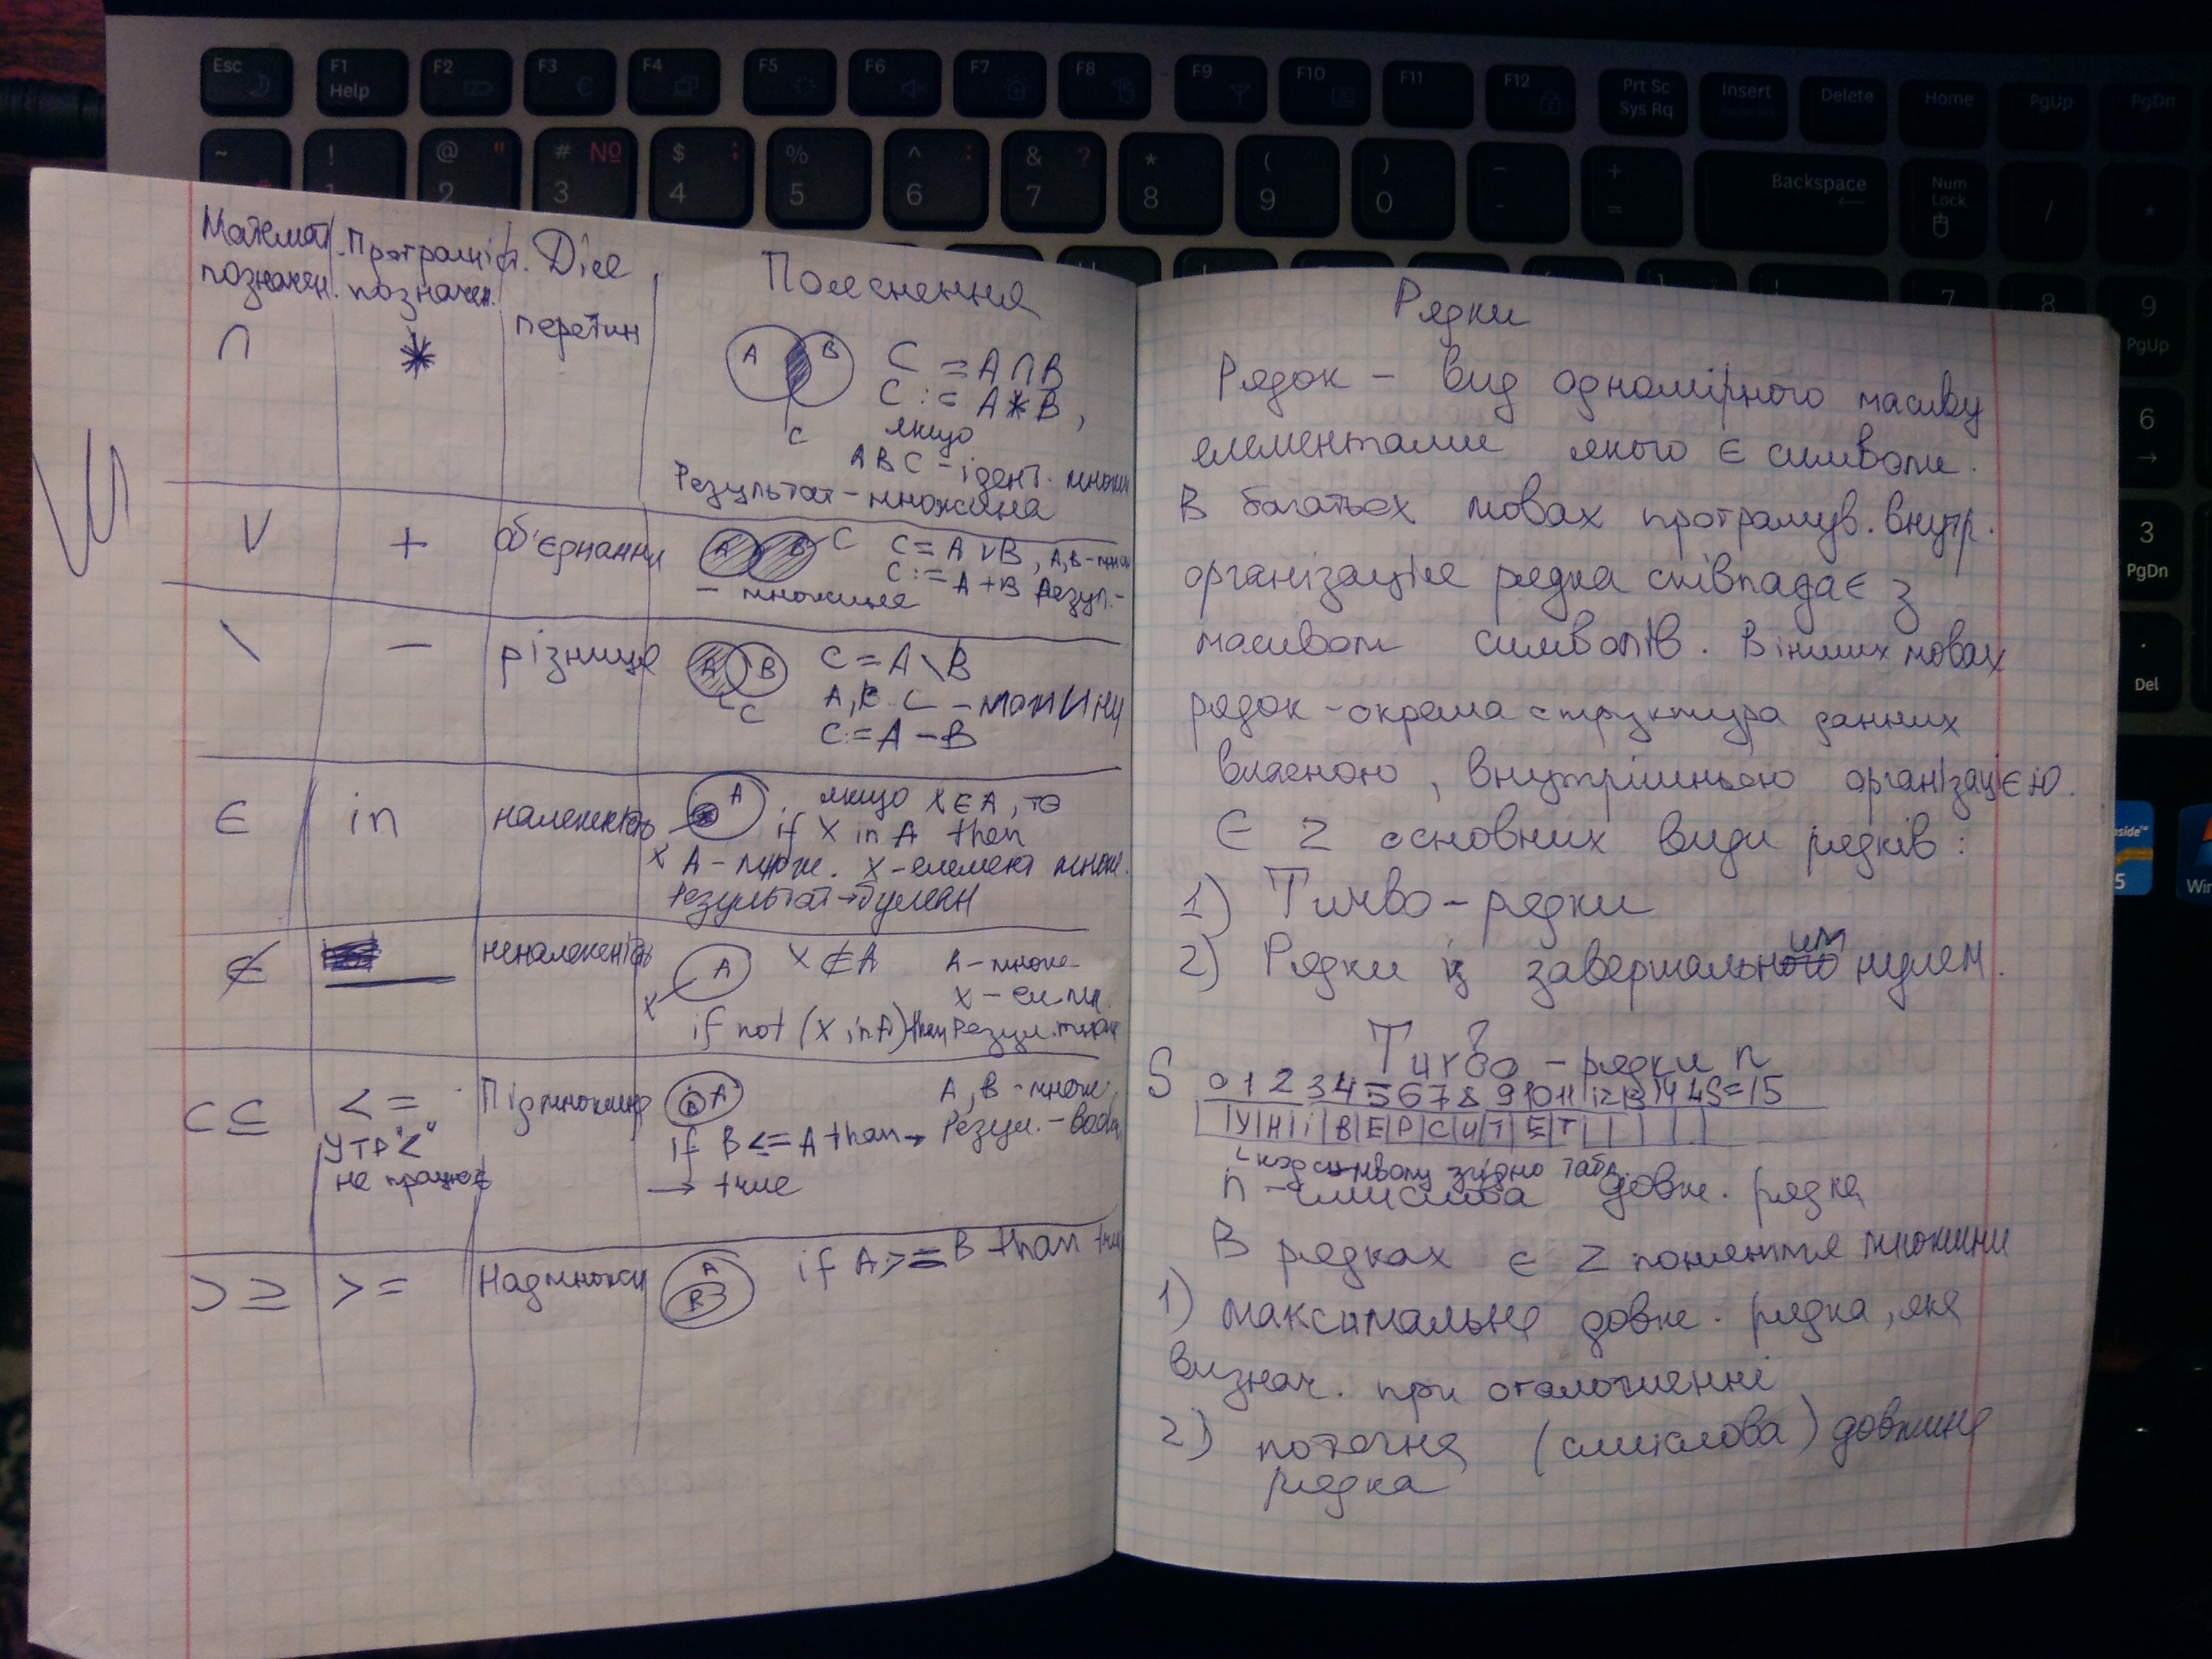 Esc F1 Help F2 F3 F4 F5 F6 F7 F8 F9 F10 F11 F12 Prt Sc Sys Rq Insert Delete Home PgUp PgDn
~ ! 1 @ " 2 # № 3 $ ; 4 % 5 ^ : 6 & ? 7 * 8 ( 9 ) 0 _ - + = Backspace Num Lock / *
7 8 9 PgUp
6
3 PgDn
. Del
Математ. Програміст. Дія Пояснення
позначен. позначен.
∩ * перетин A B C = A∩B
C := A*B,
C якщо
A B C - ідент. множи
Результат - множина
V + об'єднання A B C C = A V B, A, B - множ
C := A + B Резул. -
- множиня
\ - різниця A B C = A \ B
A, B, C - множини
C C := A - B
∈ in належність A якщо X ∈ A, то
if X in A then
X A - множ. X - елемент множ.
Результат → булеан
∉ неналежність A X ∉ A A - множ
X X - ел. мн.
if not (X in A) then Резул. множ
⊂ ⊆ <= Підмножина A A, B - множ
У ТР "<" if B <= A than → Резул. -
не працює → true
⊃ ⊇ >= Надмножи A B if A >= B than tru
Рядки
Рядок - вид одномірного масиву
елементами якого є символи.
В багатьох мовах програмув. внутр.
організація рядка співпадає з
масивом символів. В інших мовах
рядок - окрема структура данних
власною, внутрішньою організацією.
Є 2 основних види рядків:
1) Турбо - рядки
2) Рядки із завершальним нулем.
Турбо - рядки n
S 0 1 2 3 4 5 6 7 8 9 10 11 12 13 14 S=15
У Н І В Е Р С И Т Е Т
код символу згідно табл.
n - смислова довж. рядка
В рядках є 2 поняття множини
1) максимальня довж. рядка, яка
визнач. при оголошенні
2) поточна (смислова) довжина
рядка